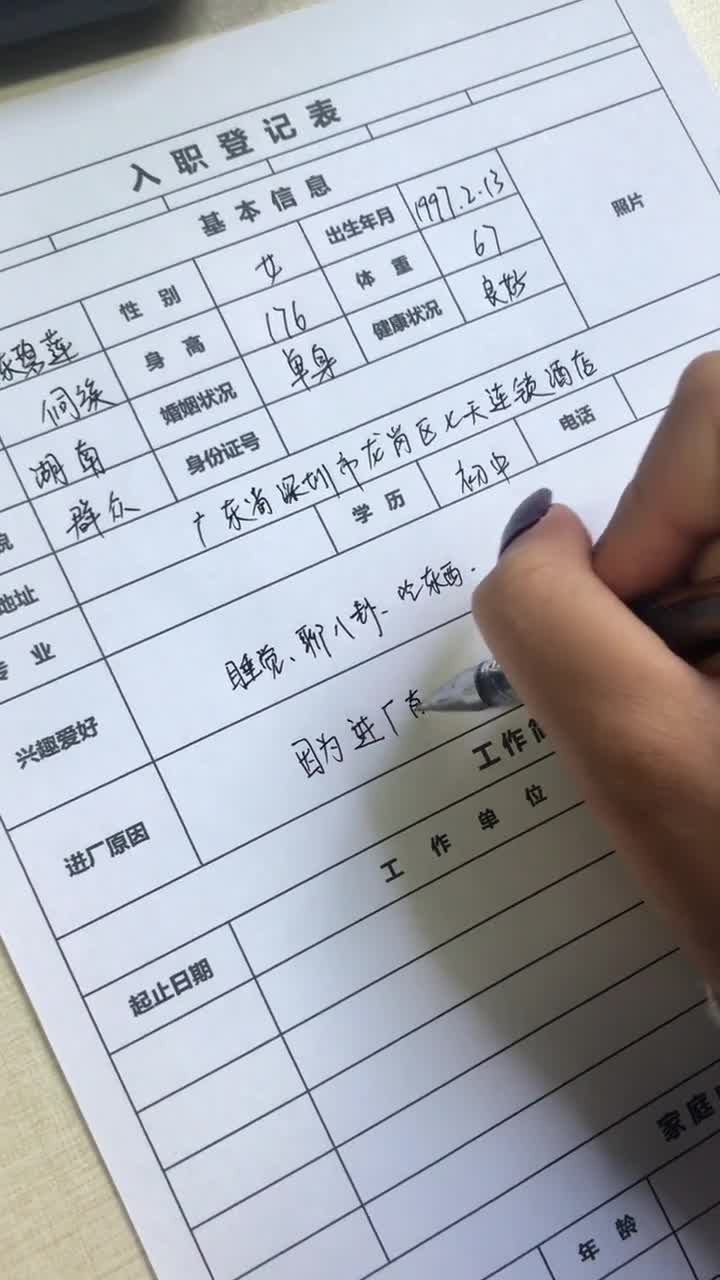 入职登记表
基本信息
碧莲 性别 女 出生年月 1997.2.13 照片
侗族 身高 176 体重 67
湖南 婚姻状况 单身 健康状况 良好
群众 身份证号
地址 广东省深圳市龙岗区七天连锁酒店
专业 学历 初中 电话
兴趣爱好 睡觉、聊八卦、吃东西.
进厂原因 因为进厂有
工作
起止日期 工作单位
家庭
年龄